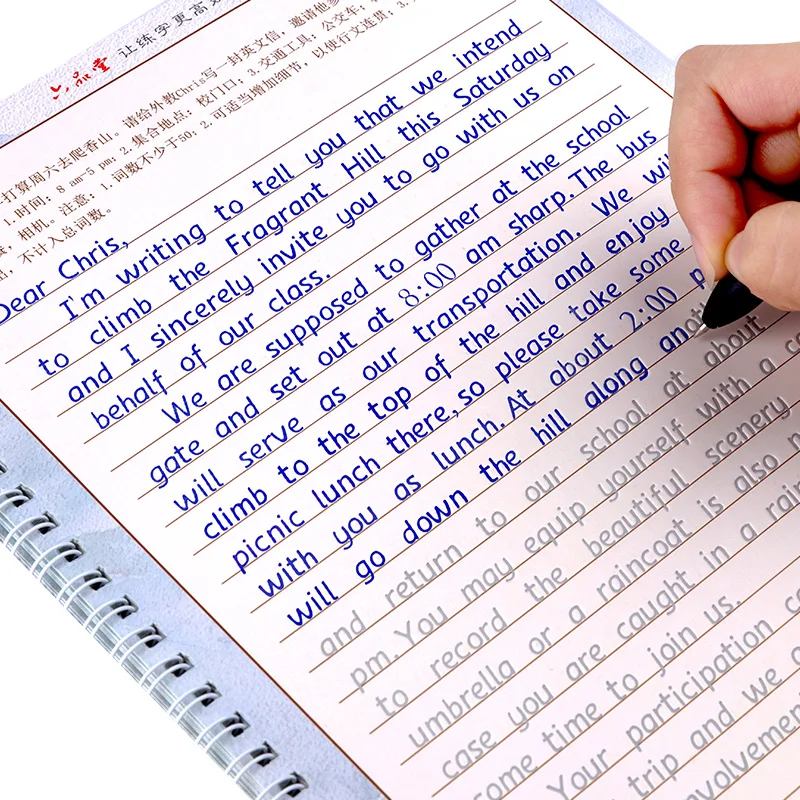 六品堂 让练字更高效
打算周六去爬香山。请给外教Chris写一封英文信，邀请他参
1.时间：8 am-5 pm；2.集合地点：校门口；3.交通工具：公交车；
相机。注意：1.词数不少于50；2.可适当增加细节，以使行文连贯；3.
不计入总词数。
Dear Chris,
I'm writing to tell you that we intend
to climb the Fragrant Hill this Saturday
and I sincerely invite you to go with us on
behalf of our class.
We are supposed to gather at the school
gate and set out at 8:00 am sharp. The bus
will serve as our transportation. We will
climb to the top of the hill and enjoy
picnic lunch there, so please take some
with you as lunch. At about 2:00 p
will go down the hill along another
and return to our school at about
pm. You may equip yourself with a ca
to record the beautiful scenery
umbrella or a raincoat is also n
case you are caught in a rain
some time to join us.
Your participation ca
trip and we a
involvement